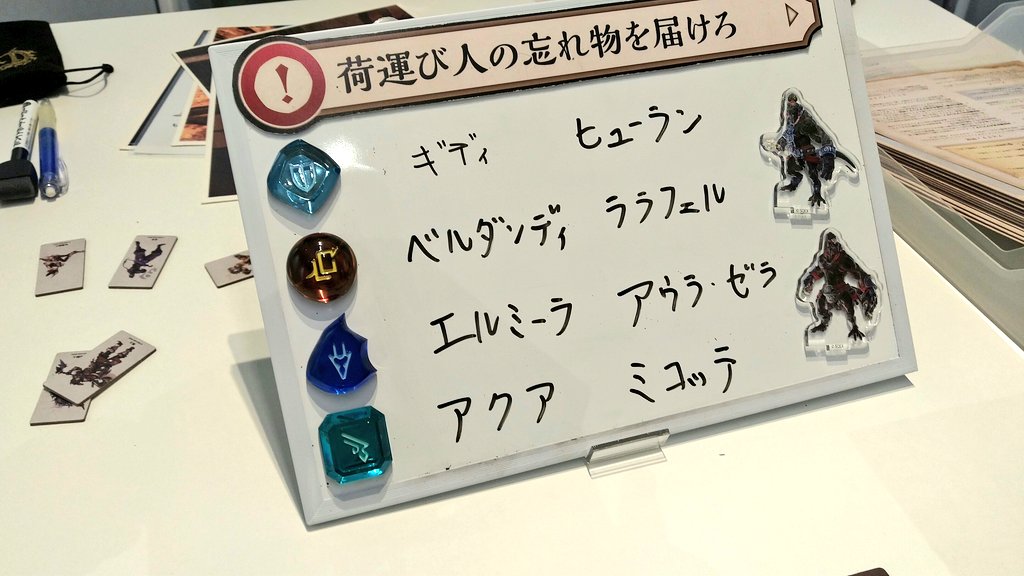 荷運び人の忘れ物を届けろ
ギディ ヒューラン
ベルダンディ ララフェル
エルミーラ アウラ・ゼラ
アクア ミコッテ